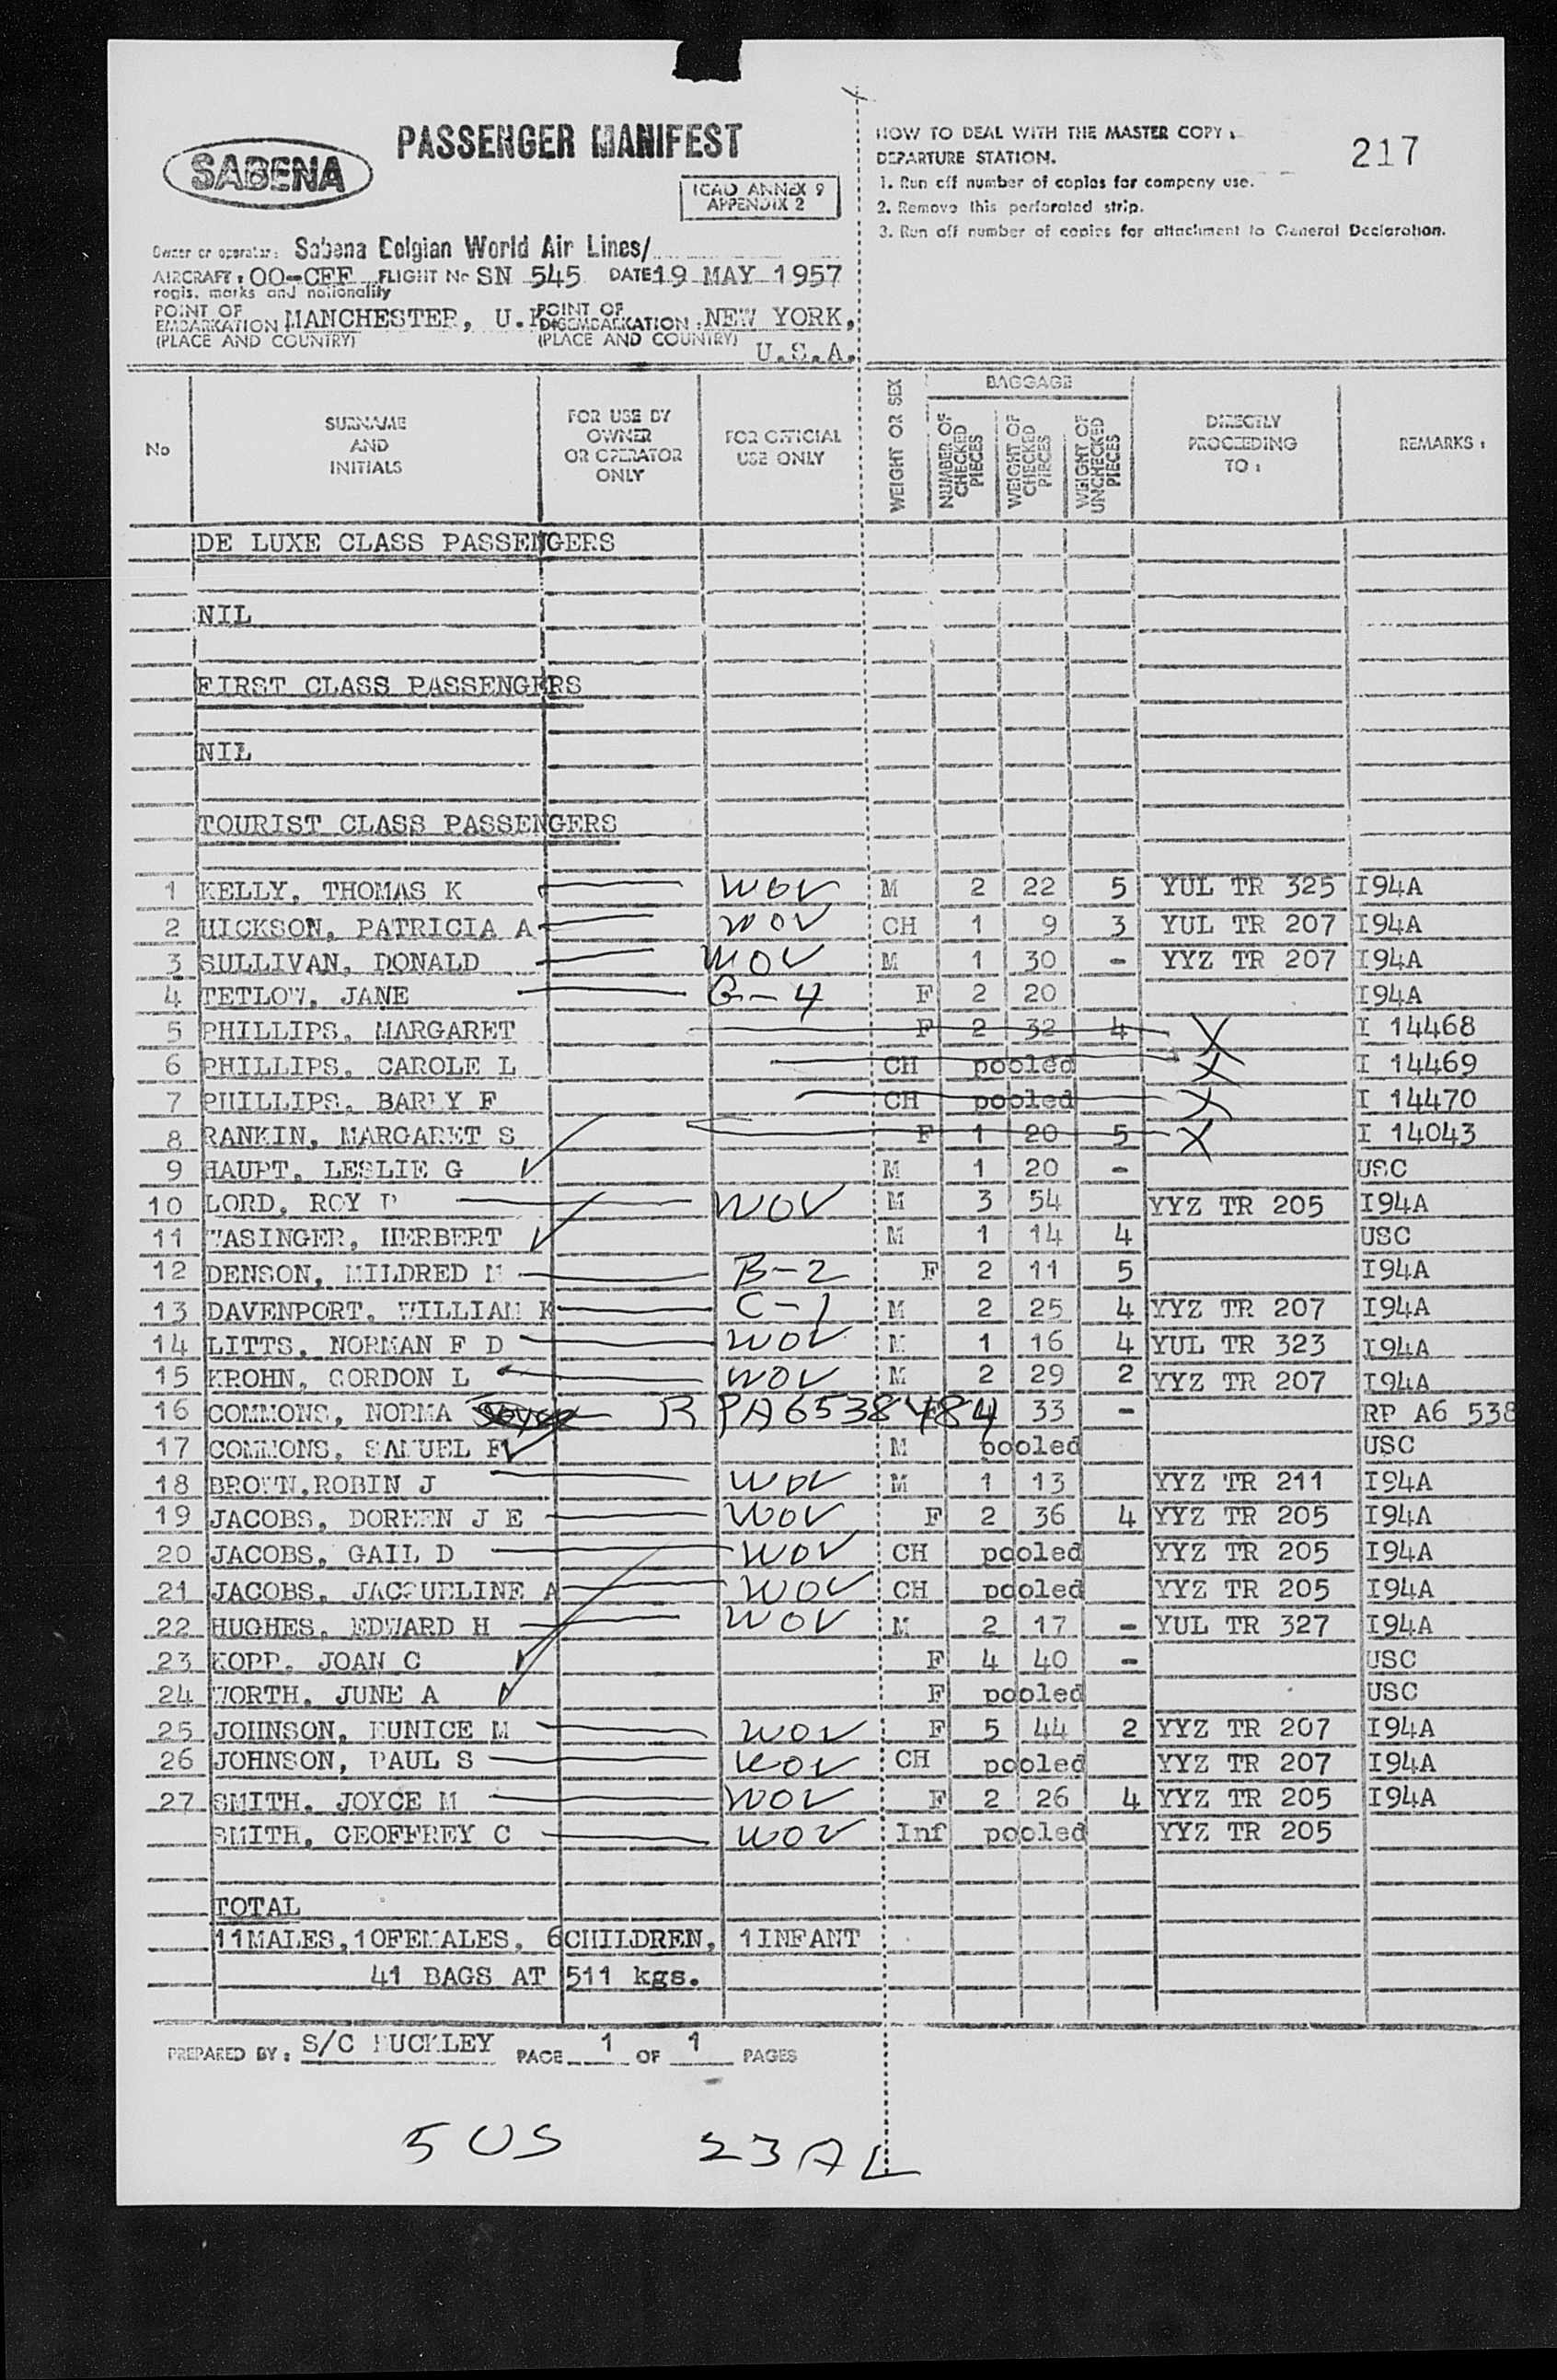 SABENA
PASSENGER MANIFEST
ICAO ANNEX 9
APPENDIX 2
HOW TO DEAL WITH THE MASTER COPY :
DEPARTURE STATION.
1. Run off number of copies for company use.
2. Remove this perforated strip.
3. Run off number of copies for attachment to General Declaration.
217
Owner or operator: Sabena Belgian World Air Lines/
AIRCRAFT: OO-CFF FLIGHT No SN 545 DATE 19 MAY 1957
regis. marks and nationality
POINT OF EMBARKATION MANCHESTER, U.K POINT OF DISEMBARKATION: NEW YORK,
(PLACE AND COUNTRY) (PLACE AND COUNTRY) U.S.A.
No SURNAME AND INITIALS FOR USE BY OWNER OR OPERATOR ONLY FOR OFFICIAL USE ONLY WEIGHT OR SEX BAGGAGE NUMBER OF CHECKED PIECES WEIGHT OF CHECKED PIECES WEIGHT OF UNCHECKED PIECES DIRECTLY PROCEEDING TO : REMARKS :
DE LUXE CLASS PASSENGERS
NIL
FIRST CLASS PASSENGERS
NIL
TOURIST CLASS PASSENGERS
1 KELLY, THOMAS K WOV M 2 22 5 YUL TR 325 I94A
2 HICKSON, PATRICIA A WOV CH 1 9 3 YUL TR 207 I94A
3 SULLIVAN, DONALD WOV M 1 30 - YYZ TR 207 I94A
4 TETLOW, JANE G-4 F 2 20 I94A
5 PHILLIPS, MARGARET F 2 32 4 X I 14468
6 PHILLIPS, CAROLE L CH pooled X I 14469
7 PHILLIPS, BARRY F CH pooled X I 14470
8 RANKIN, MARGARET S F 1 20 5 X I 14043
9 HAUPT, LESLIE G M 1 20 - USC
10 LORD, ROY WOV M 3 54 YYZ TR 205 I94A
11 WASINGER, HERBERT M 1 14 4 USC
12 DENSON, MILDRED M B-2 F 2 11 5 I94A
13 DAVENPORT, WILLIAM K C-1 M 2 25 4 YYZ TR 207 I94A
14 LITTS, NORMAN F D WOV M 1 16 4 YUL TR 323 I94A
15 KROHN, GORDON L WOV M 2 29 2 YYZ TR 207 I94A
16 COMMONS, NORMA Joyce R PA6538484 33 - RP A6 538
17 COMMONS, SAMUEL F M pooled USC
18 BROWN, ROBIN J WOV M 1 13 YYZ TR 211 I94A
19 JACOBS, DOREEN J E WOV F 2 36 4 YYZ TR 205 I94A
20 JACOBS, GAIL D WOV CH pooled YYZ TR 205 I94A
21 JACOBS, JACQUELINE A WOV CH pooled YYZ TR 205 I94A
22 HUGHES, EDWARD H WOV M 2 17 - YUL TR 327 I94A
23 KOPP, JOAN C F 4 40 - USC
24 WORTH, JUNE A F pooled USC
25 JOHNSON, EUNICE M WOV F 5 44 2 YYZ TR 207 I94A
26 JOHNSON, PAUL S WOV CH pooled YYZ TR 207 I94A
27 SMITH, JOYCE M WOV F 2 26 4 YYZ TR 205 I94A
SMITH, GEOFFREY C WOV Inf pooled YYZ TR 205
TOTAL
11MALES, 10FEMALES, 6CHILDREN, 1INFANT
41 BAGS AT 511 kgs.
PREPARED BY: S/C BUCKLEY PAGE 1 OF 1 PAGES
5 US 23 AL